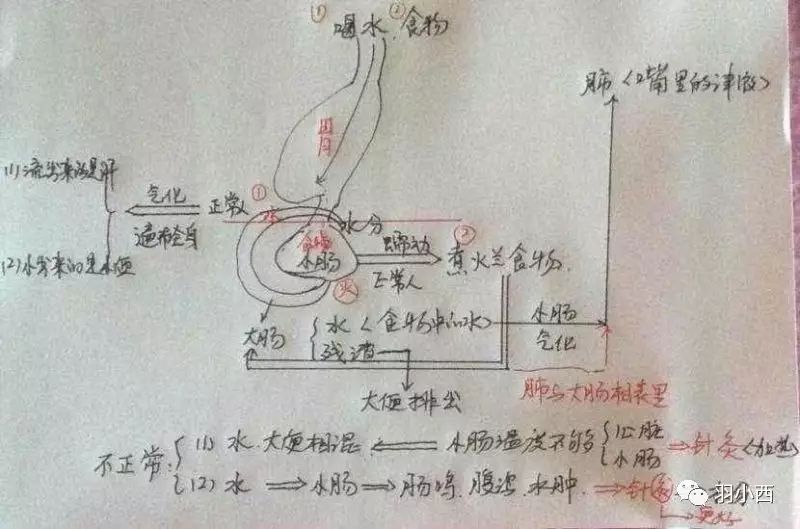 ① 喝水. ② 食物
肺〈口嘴里的津液〉
胃
(1)流出来的是汗
气化
正常人
遍布全身
(2)小出来的是小便
①
水
水分
食物
小肠
火
蠕动
正常人
②
煮火兰食物
大肠
水〈食物中的水〉
残渣
小肠
气化
大便排出
肺与大肠相表里
不正常:
(1) 水.大便相混 ⇐ 小肠温度不够 心脏 小肠 ⇒ 针灸
(2) 水 ⇒ 小肠 ⇒ 肠鸣. 腹泻. 水肿. ⇒ 针灸
羽小西